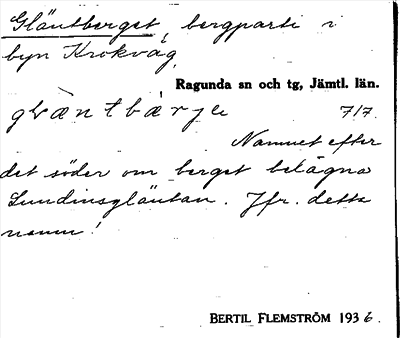 Gläntberget, bergparti i
byn Krokvåg
Ragunda sn och tg, Jämtl. län.
7/7.
Namnet efter
det söder om berget belägna
Lundinsgläntan. Jfr. detta
namn!
BERTIL FLEMSTRÖM 1936.